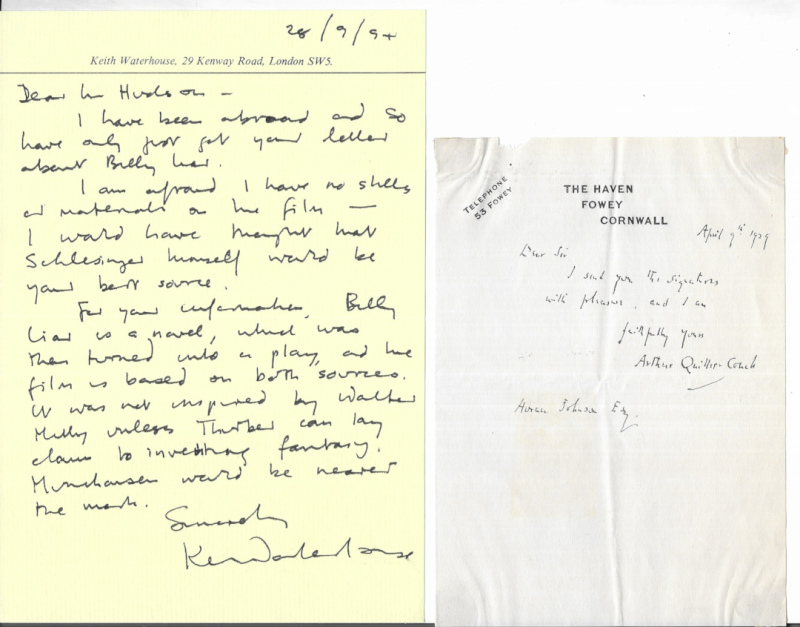 28/9/94
Keith Waterhouse, 29 Kenway Road, London SW5.
Dear Mr Hudson -
I have been abroad and so
have only just got your letter
about Billy Liar.
I am afraid I have no stills
or materials on the film —
I would have thought that
Schlesinger himself would be
your best source.
For your information, Billy
Liar is a novel, which was
then turned into a play, and the
film is based on both sources.
It was not inspired by Walter
Mitty unless Thurber can lay
claim to inventing fantasy.
Munchausen would be nearer
the mark.
Sincerely
Keith Waterhouse
TELEPHONE
53 FOWEY
THE HAVEN
FOWEY
CORNWALL
April 9th 1929
Dear Sir
I send you the signature
with pleasure, and I am
faithfully yours
Arthur Quiller-Couch
Johnson Esq.